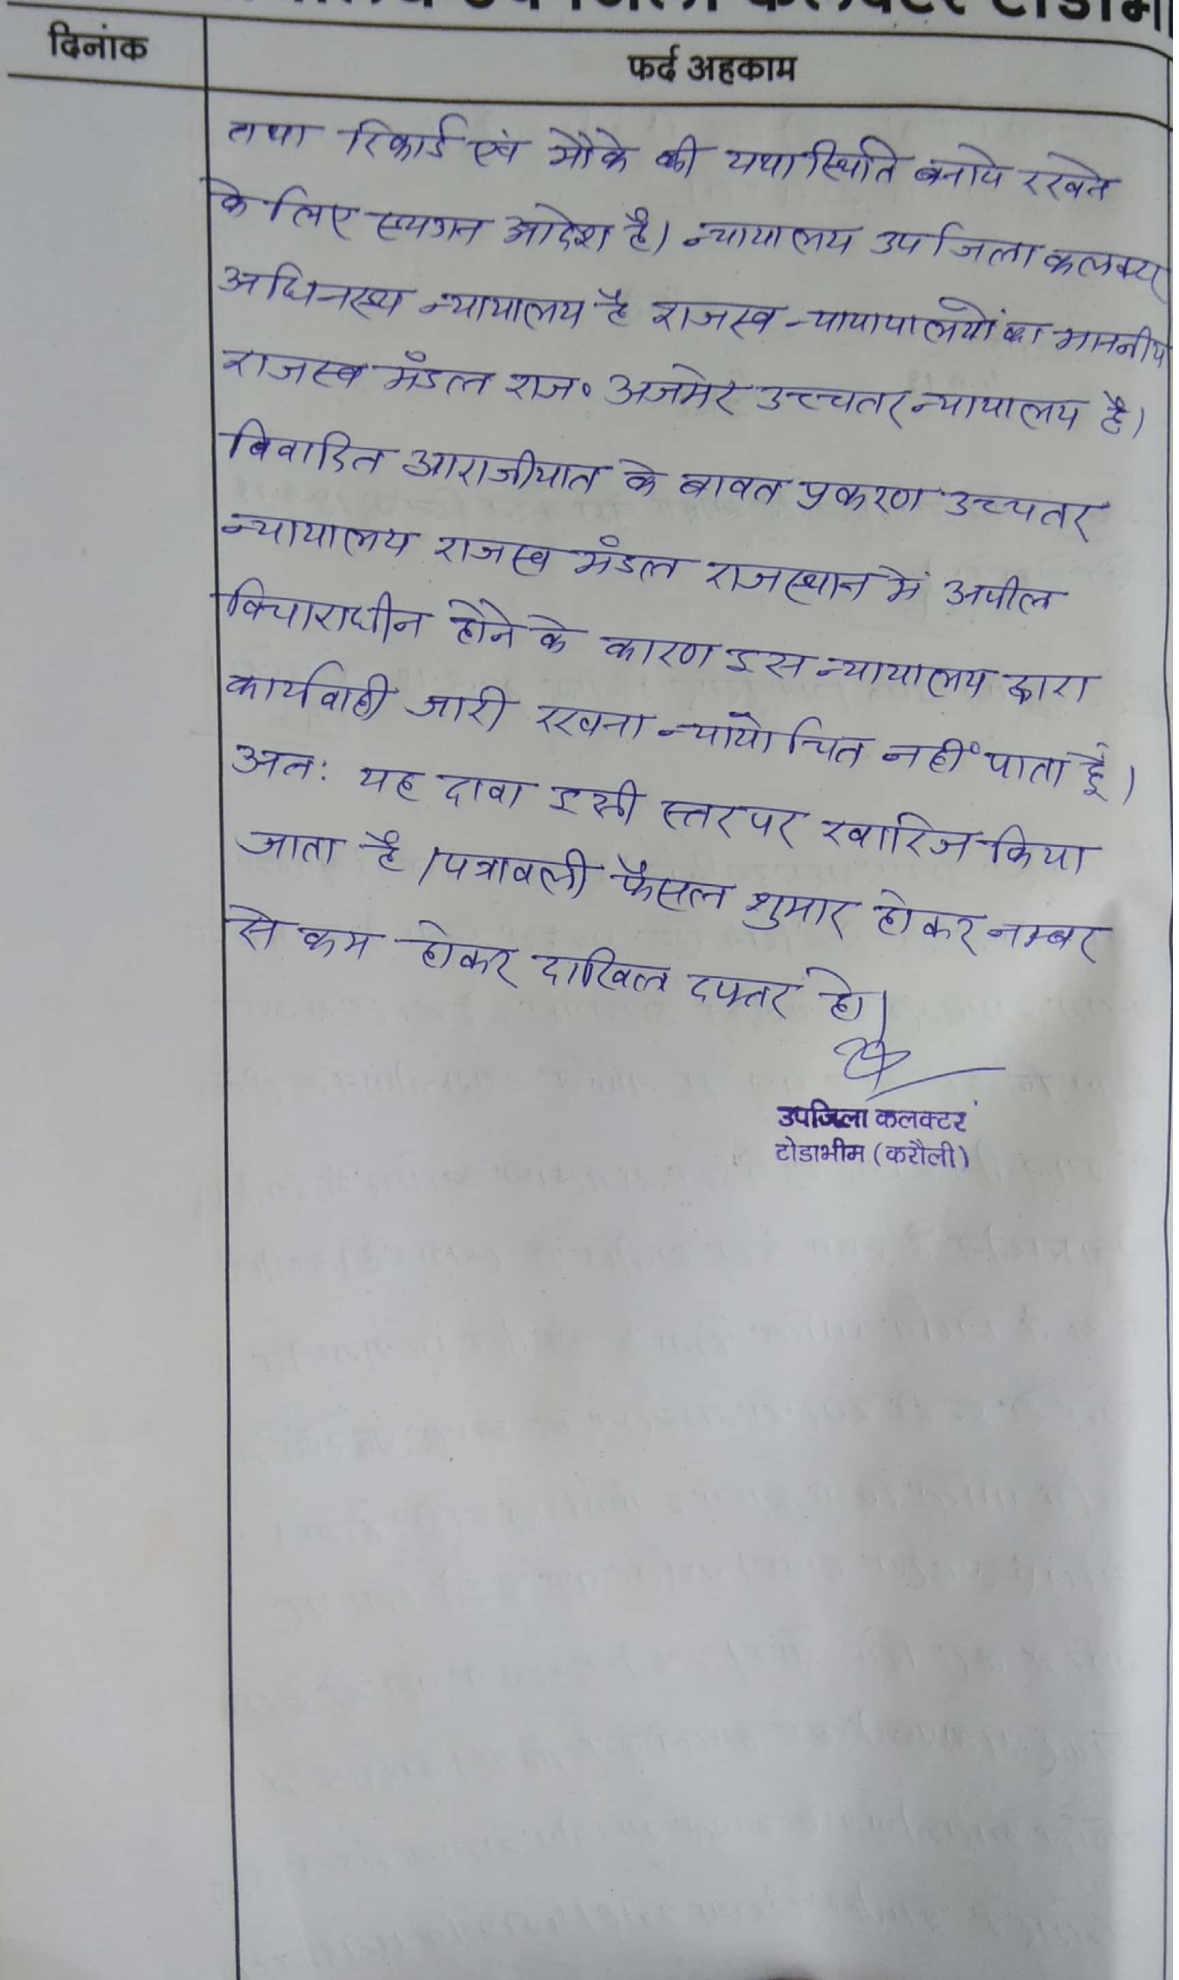 उप जिला कलक्टर टोडाभी
दिनांक
फर्द अहकाम
तथा रिकार्ड एवं मौके की यथास्थिति बनाये रखने
के लिए स्थगन आदेश है। न्यायालय उप जिला कलक्टर
अधिनस्थ न्यायालय है राजस्व न्यायापालयों का माननीय
राजस्व मंडल राज० अजमेर उच्चतर न्यायालय है।
विवादित आराजीयात के बावत प्रकरण उच्चतर
न्यायालय राजस्व मंडल राजस्थान में अपील
विचाराधीन होने के कारण इस न्यायालय द्वारा
कार्यवाही जारी रखना न्यायोचित नहीं पाता हूँ।
अतः यह दावा इसी स्तर पर खारिज किया
जाता है। पत्रावली फैसल शुमार होकर नम्बर
से कम होकर दाखिल दफ्तर हो।
उपजिला कलक्टर
टोडाभीम (करौली)